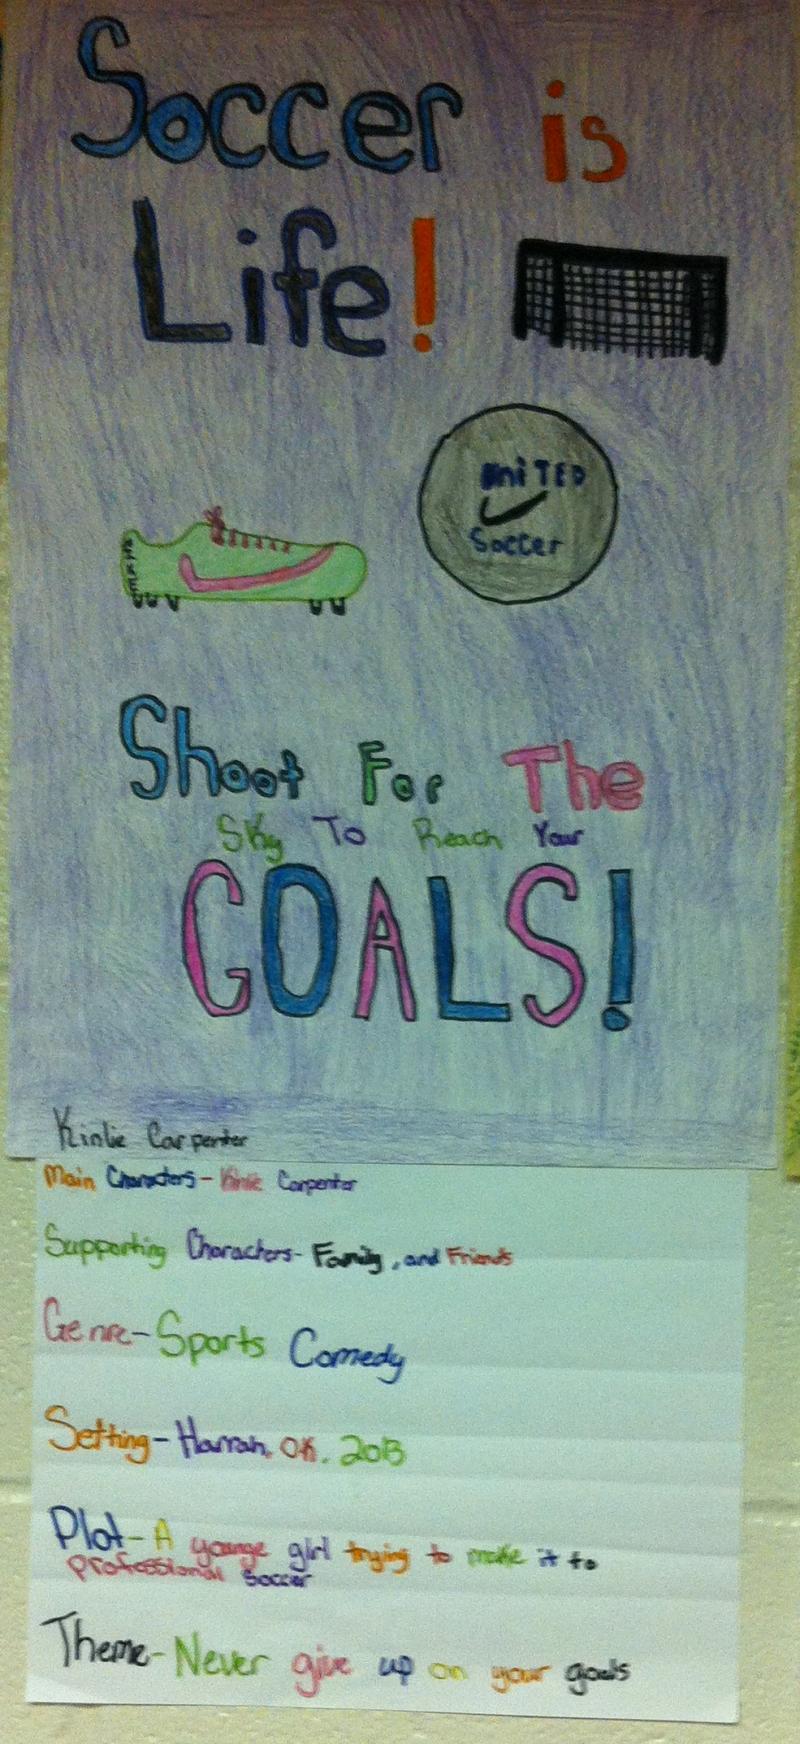 Soccer is
Life!
UniTED
Soccer
Shoot For The
Sky To Reach Your
GOALS!
Kinlie Carpenter
Main Characters - Kinlie Carpenter
Supporting Characters - Family, and Friends
Genre - Sports Comedy
Setting - Harrah, OK. 2013
Plot - A younge girl trying to make it to
professional soccer
Theme - Never give up on your goals